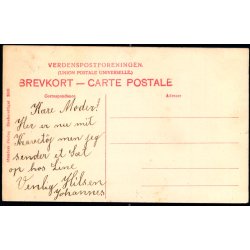 VERDENSPOSTFORENINGEN.
(UNION POSTALE UNIVERSELLE.)
BREVKORT — CARTE POSTALE
Correspondance
Adresse
Kære Moder!
Her er nu mit
Kravetøj men jeg
sender et Sæt
op hos Line
Venlig Hilsen
Johannes